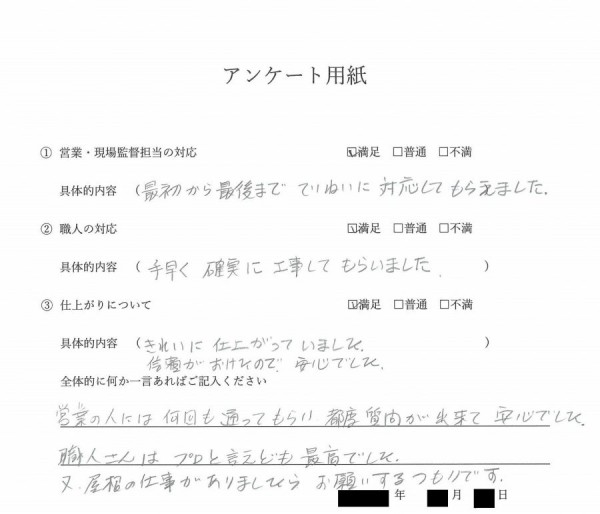 アンケート用紙
① 営業・現場監督担当の対応 ☑満足 □普通 □不満
具体的内容 (最初から最後まで ていねいに 対応して もらえました。
② 職人の対応 ☑満足 □普通 □不満
具体的内容 (手早く 確実に 工事して もらいました。)
③ 仕上がりについて ☑満足 □普通 □不満
具体的内容 (きれいに 仕上がって いました。)
信頼が おけたので、安心でした。
全体的に何か一言あればご記入ください
営業の人には 何回も 通ってもらい 都度 質問が 出来て 安心でした。
職人さんは プロと言えども 最高でした。
又、屋根の仕事がありましたら お願いするつもりです。
年 月 日